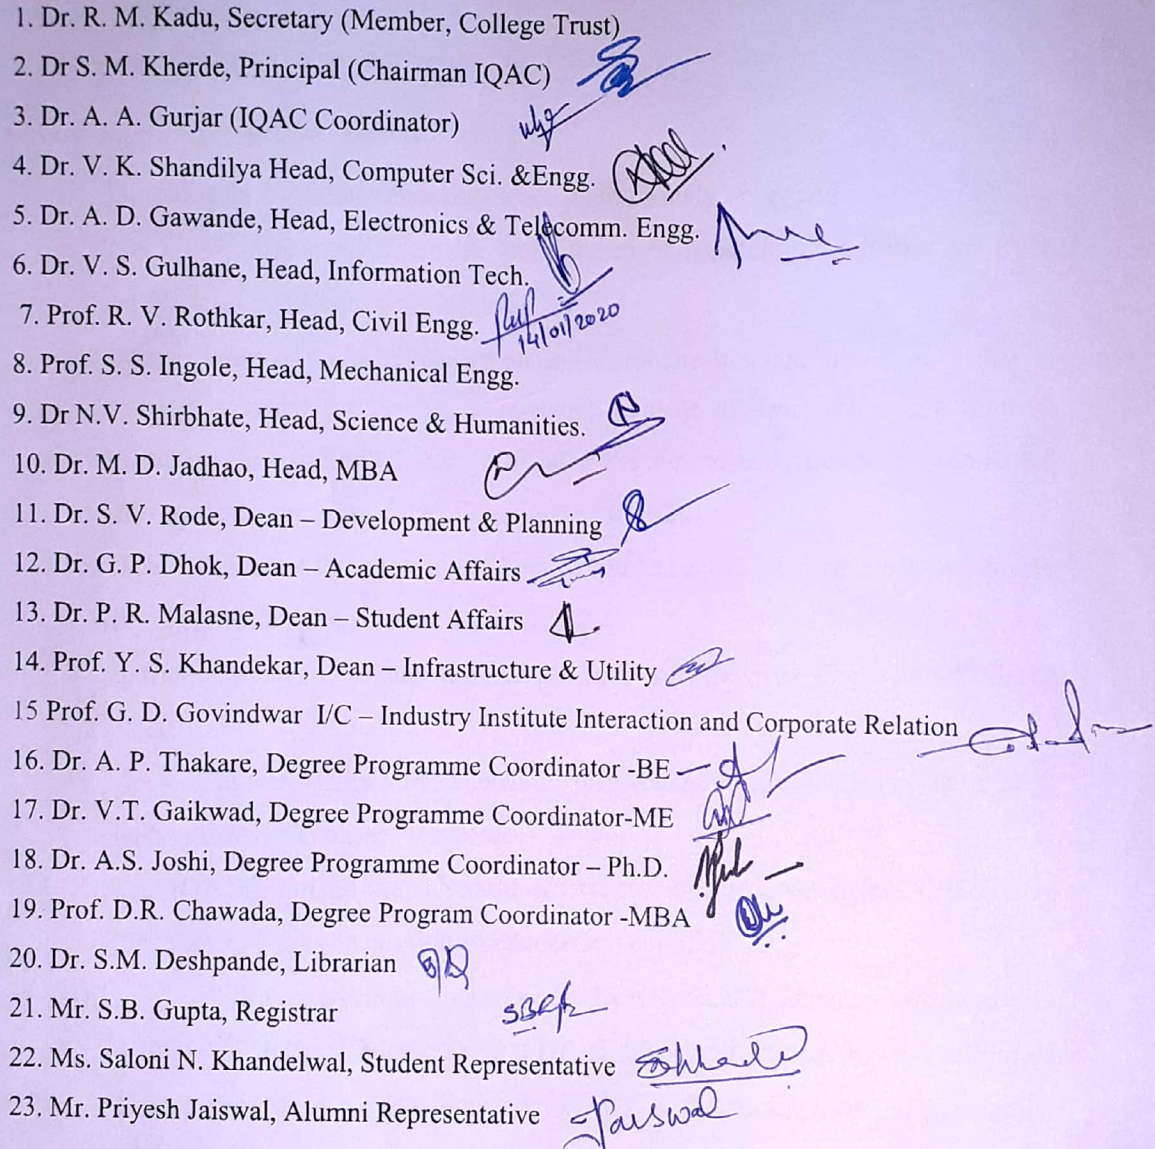 1. Dr. R. M. Kadu, Secretary (Member, College Trust)
2. Dr S. M. Kherde, Principal (Chairman IQAC)
3. Dr. A. A. Gurjar (IQAC Coordinator)
4. Dr. V. K. Shandilya Head, Computer Sci. &Engg.
5. Dr. A. D. Gawande, Head, Electronics & Telecomm. Engg.
6. Dr. V. S. Gulhane, Head, Information Tech.
7. Prof. R. V. Rothkar, Head, Civil Engg.
14/01/2020
8. Prof. S. S. Ingole, Head, Mechanical Engg.
9. Dr N.V. Shirbhate, Head, Science & Humanities.
10. Dr. M. D. Jadhao, Head, MBA
11. Dr. S. V. Rode, Dean – Development & Planning
12. Dr. G. P. Dhok, Dean – Academic Affairs
13. Dr. P. R. Malasne, Dean – Student Affairs
14. Prof. Y. S. Khandekar, Dean – Infrastructure & Utility
15 Prof. G. D. Govindwar I/C – Industry Institute Interaction and Corporate Relation
16. Dr. A. P. Thakare, Degree Programme Coordinator -BE
17. Dr. V.T. Gaikwad, Degree Programme Coordinator-ME
18. Dr. A.S. Joshi, Degree Programme Coordinator – Ph.D.
19. Prof. D.R. Chawada, Degree Program Coordinator -MBA
20. Dr. S.M. Deshpande, Librarian
21. Mr. S.B. Gupta, Registrar
22. Ms. Saloni N. Khandelwal, Student Representative
23. Mr. Priyesh Jaiswal, Alumni Representative Jaiswal